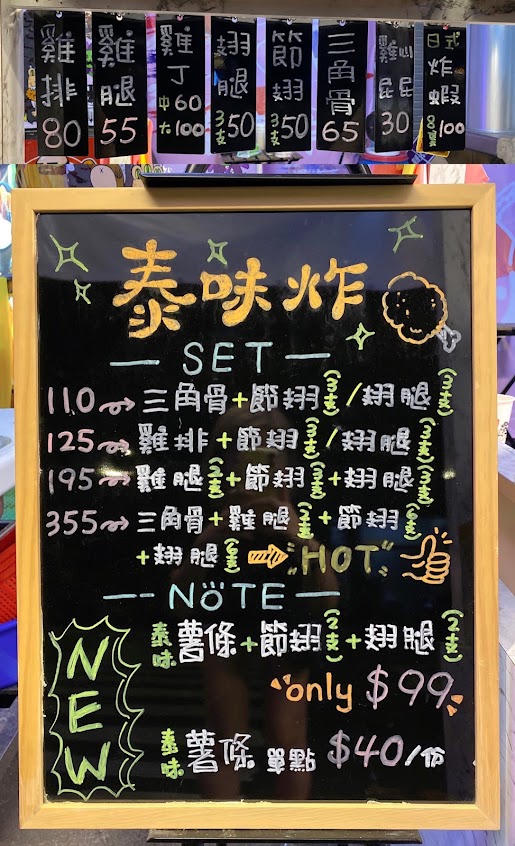 雞排 80
雞腿 55
雞丁 中60 大100
翅腿 3支50
節翅 3支50
三角骨 65
雞心 屁屁 30
日式炸蝦 8隻100
泰味炸
SET
110 三角骨+節翅(3支)/翅腿(3支)
125 雞排+節翅(3支)/翅腿(3支)
195 雞腿(2支)+節翅(3支)+翅腿(3支)
355 三角骨+雞腿(3支)+節翅(6支)
+翅腿(6支) HOT
NOTE
NEW
泰味薯條+節翅(2支)+翅腿(2支)
only $99
泰味薯條 單點 $40/份